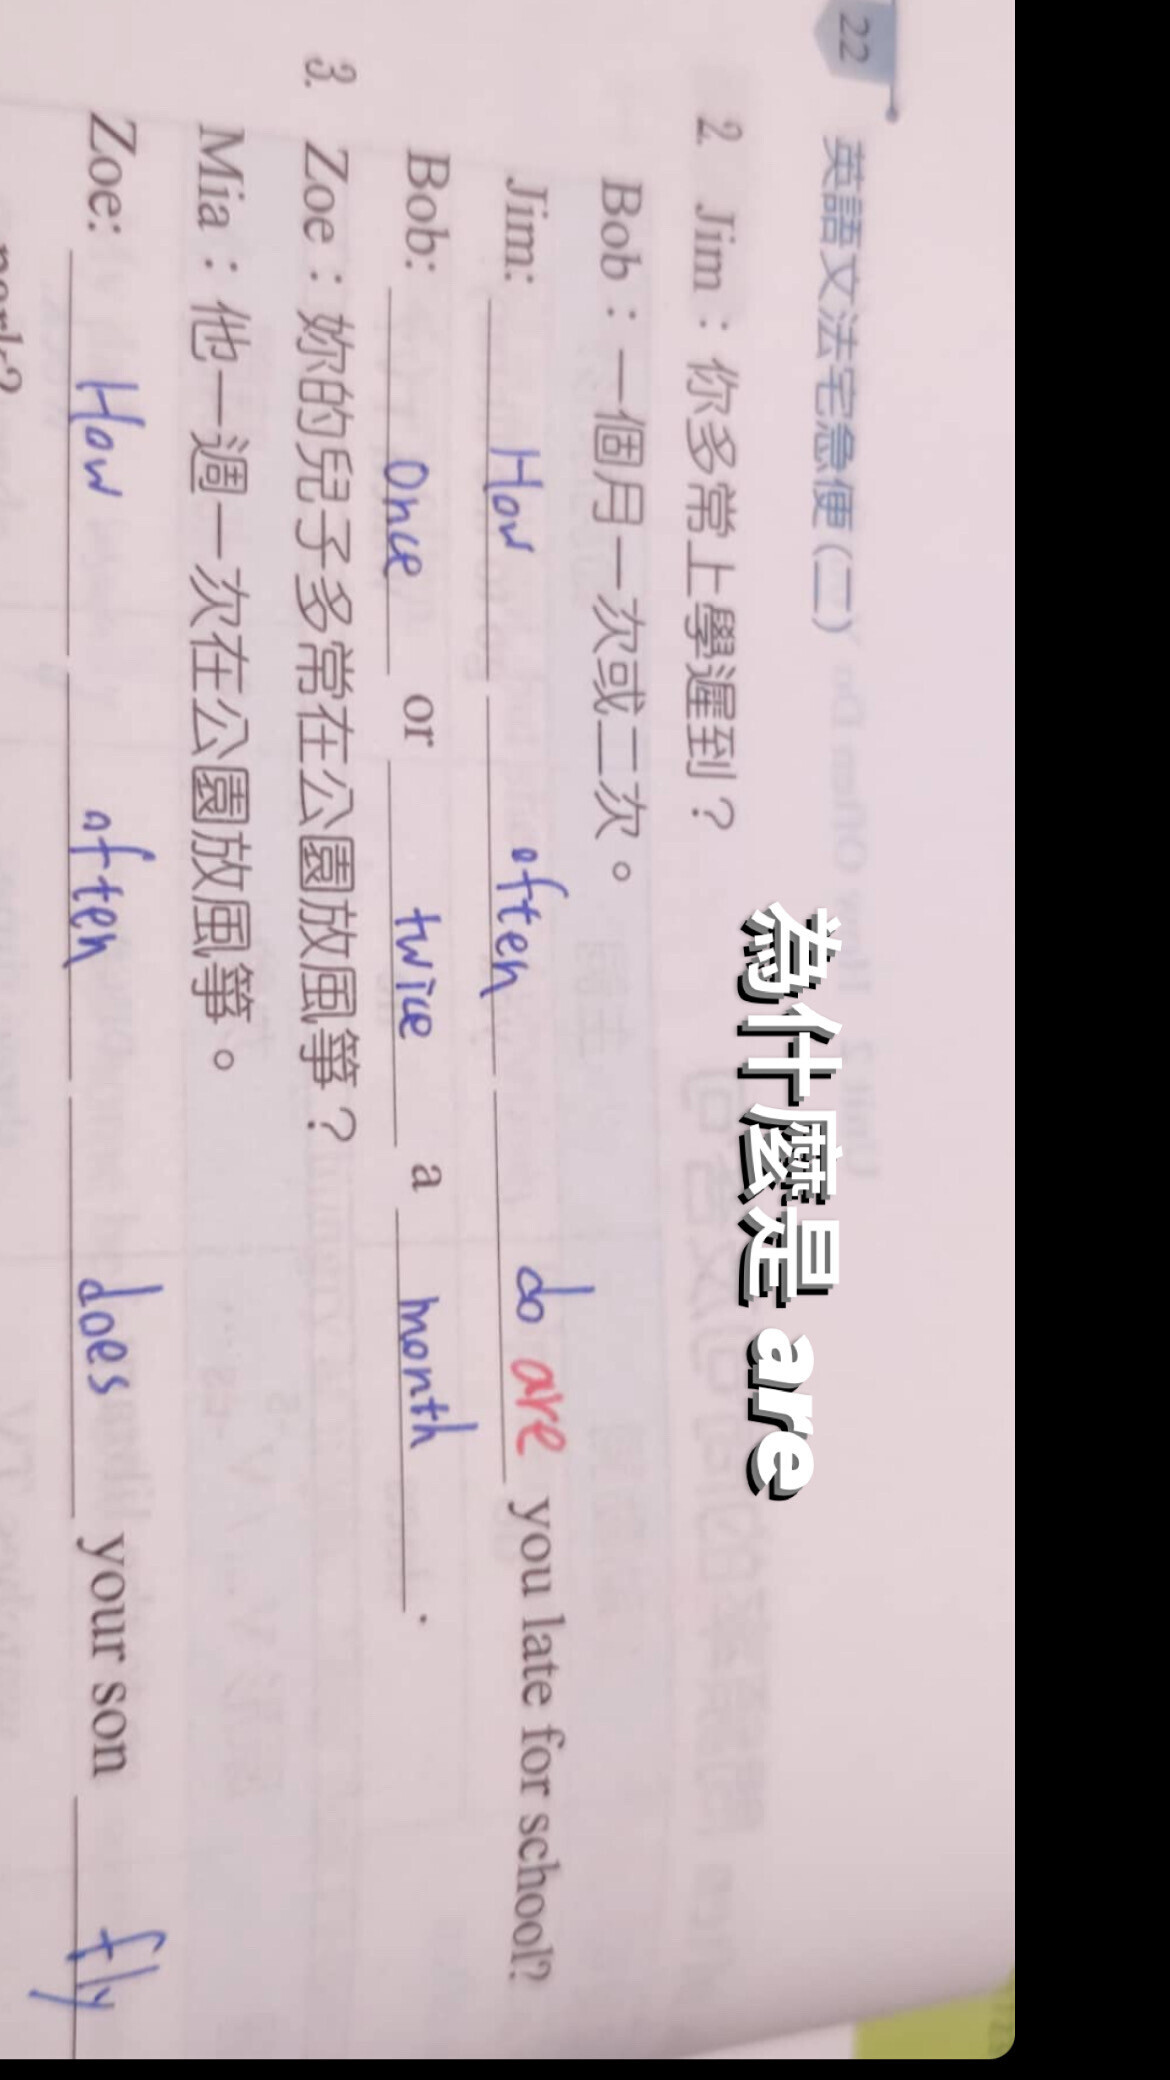 22 英語文法宅急便(二)
2. Jim：你多常上學遲到？
Bob：一個月一次或二次。
為什麼是 are
Jim: How often do are you late for school?
Bob: Once or twice a month.
3. Zoe：妳的兒子多常在公園放風箏？
Mia：他一週一次在公園放風箏。
Zoe: How often does your son fly
park?